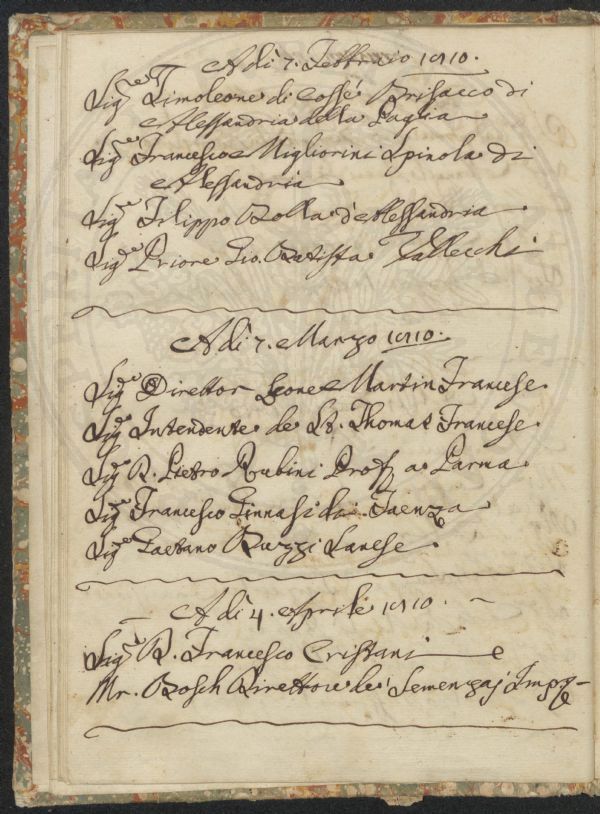 A di 7. Febbraio 1810.
Sig.e Timoleone di Cossé Brisacco di
Alessandria della Paglia
Sig.e Francesco Migliorini Spinola di
Alessandria
Sig.e Filippo Bolla d'Alessandria
Sig.e Priore Gio. Batista Vallecchi
A di 7. Marzo 1810.
Sig.e Direttor Leone Martin Francese
Sig.e Intendente de St. Thomas Francese
Sig.e R. Pietro Rubini Prof. a Parma
Sig.e Francesco Ginnasi di Faenza
Sig.e Gaetano Ruzzi Lanese
A di 4. Aprile 1810.
Sig.e R. Francesco Cristani e
Mr. Bosch Direttore de